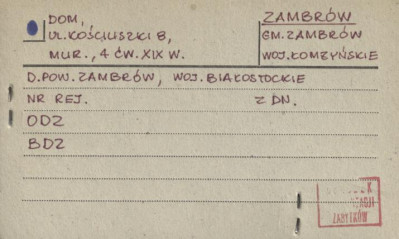 DOM,
UL. KOŚCIUSZKI 8,
MUR., 4 ĆW. XIX W.
ZAMBRÓW
GM. ZAMBRÓW
WOJ. ŁOMŻYŃSKIE
D. POW. ZAMBRÓW, WOJ. BIAŁOSTOCKIE
NR REJ. Z DN.
ODZ
BDZ
ZABYTKÓW